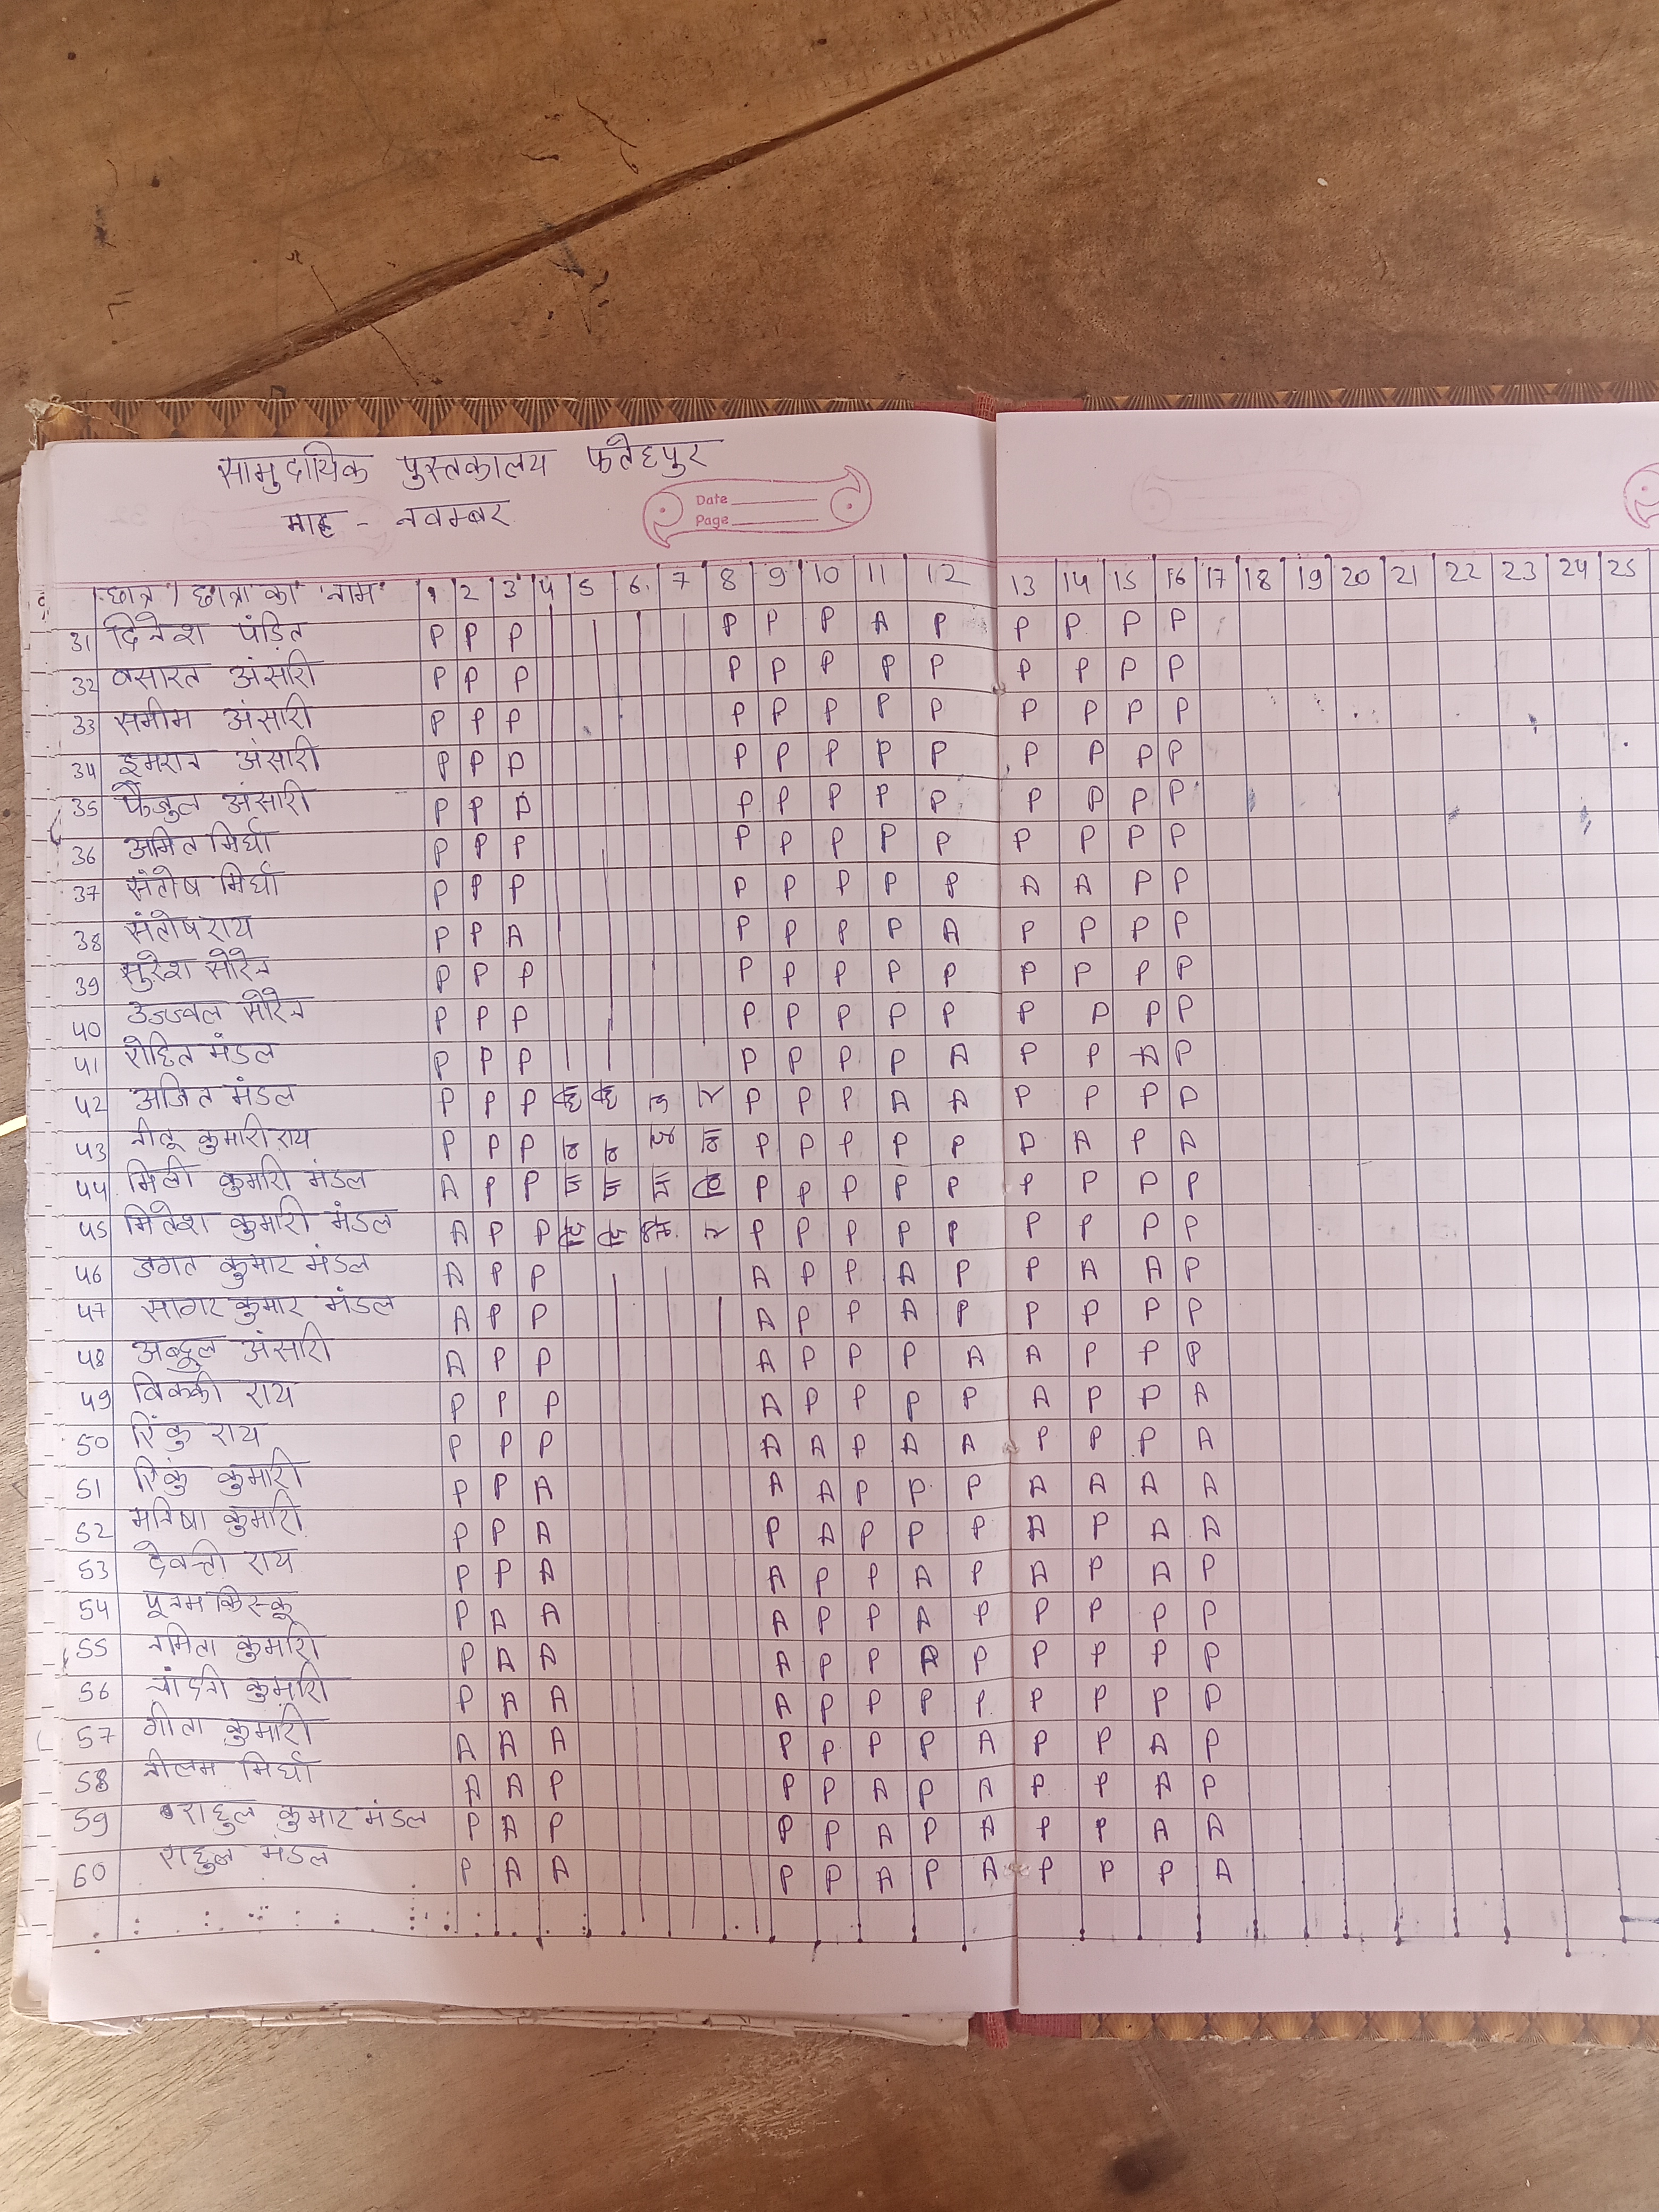 सामुदायिक पुस्तकालय फतेहपुर
माह - नवम्बर
Date
Page
छात्र / छात्रा का नाम 1 2 3 4 5 6 7 8 9 10 11 12 13 14 15 16 17 18 19 20 21 22 23 24 25
31 दिनेश पंडित P P P P P P A P P P P P
32 वसारत अंसारी P P P P P P P P P P P P
33 समीम अंसारी P P P P P P P P P P P P
34 इमरान अंसारी P P P P P P P P P P P P
35 फैजुल अंसारी P P P P P P P P P P P P
36 अमित मिर्घा P P P P P P P P P P P P
37 संतोष मिर्घा P P P P P P P P A A P P
38 संतोष राय P P A P P P P A P P P P
39 सुरेश सोरेन P P P P P P P P P P P P
40 उज्ज्वल सोरेन P P P P P P P P P P P P
41 रोहित मंडल P P P P P P P A P P A P
42 अजित मंडल P P P P P P A A P P P P
43 नीलू कुमारी राय P P P P P P P P P A P A
44 मिली कुमारी मंडल A P P P P P P P P P P P
45 मितेश कुमारी मंडल A P P P P P P P P P P P
46 जगत कुमार मंडल A P P A P P A P P A A P
47 सागर कुमार मंडल A P P A P P A P P P P P
48 अब्दुल अंसारी A P P A P P P A A P P P
49 विक्की राय P P P A P P P P A P P A
50 रिंकु राय P P P A A P A A P P P A
51 रिंकु कुमारी P P A A A P P P A A A A
52 मनिषा कुमारी P P A P A P P P A P A A
53 देवन्ती राय P P A A P P A P A P A P
54 पूनम किस्कू P A A A P P A P P P P P
55 नमिता कुमारी P A A A P P A P P P P P
56 चांदनी कुमारी P A A A P P P P P P P P
57 गीता कुमारी A A A P P P P A P P A P
58 नीलम मिर्घा A A P P P A P A P P A P
59 राहुल कुमार मंडल P A P P P A P A P P A A
60 राहुल मंडल P A A P P A P A P P P A